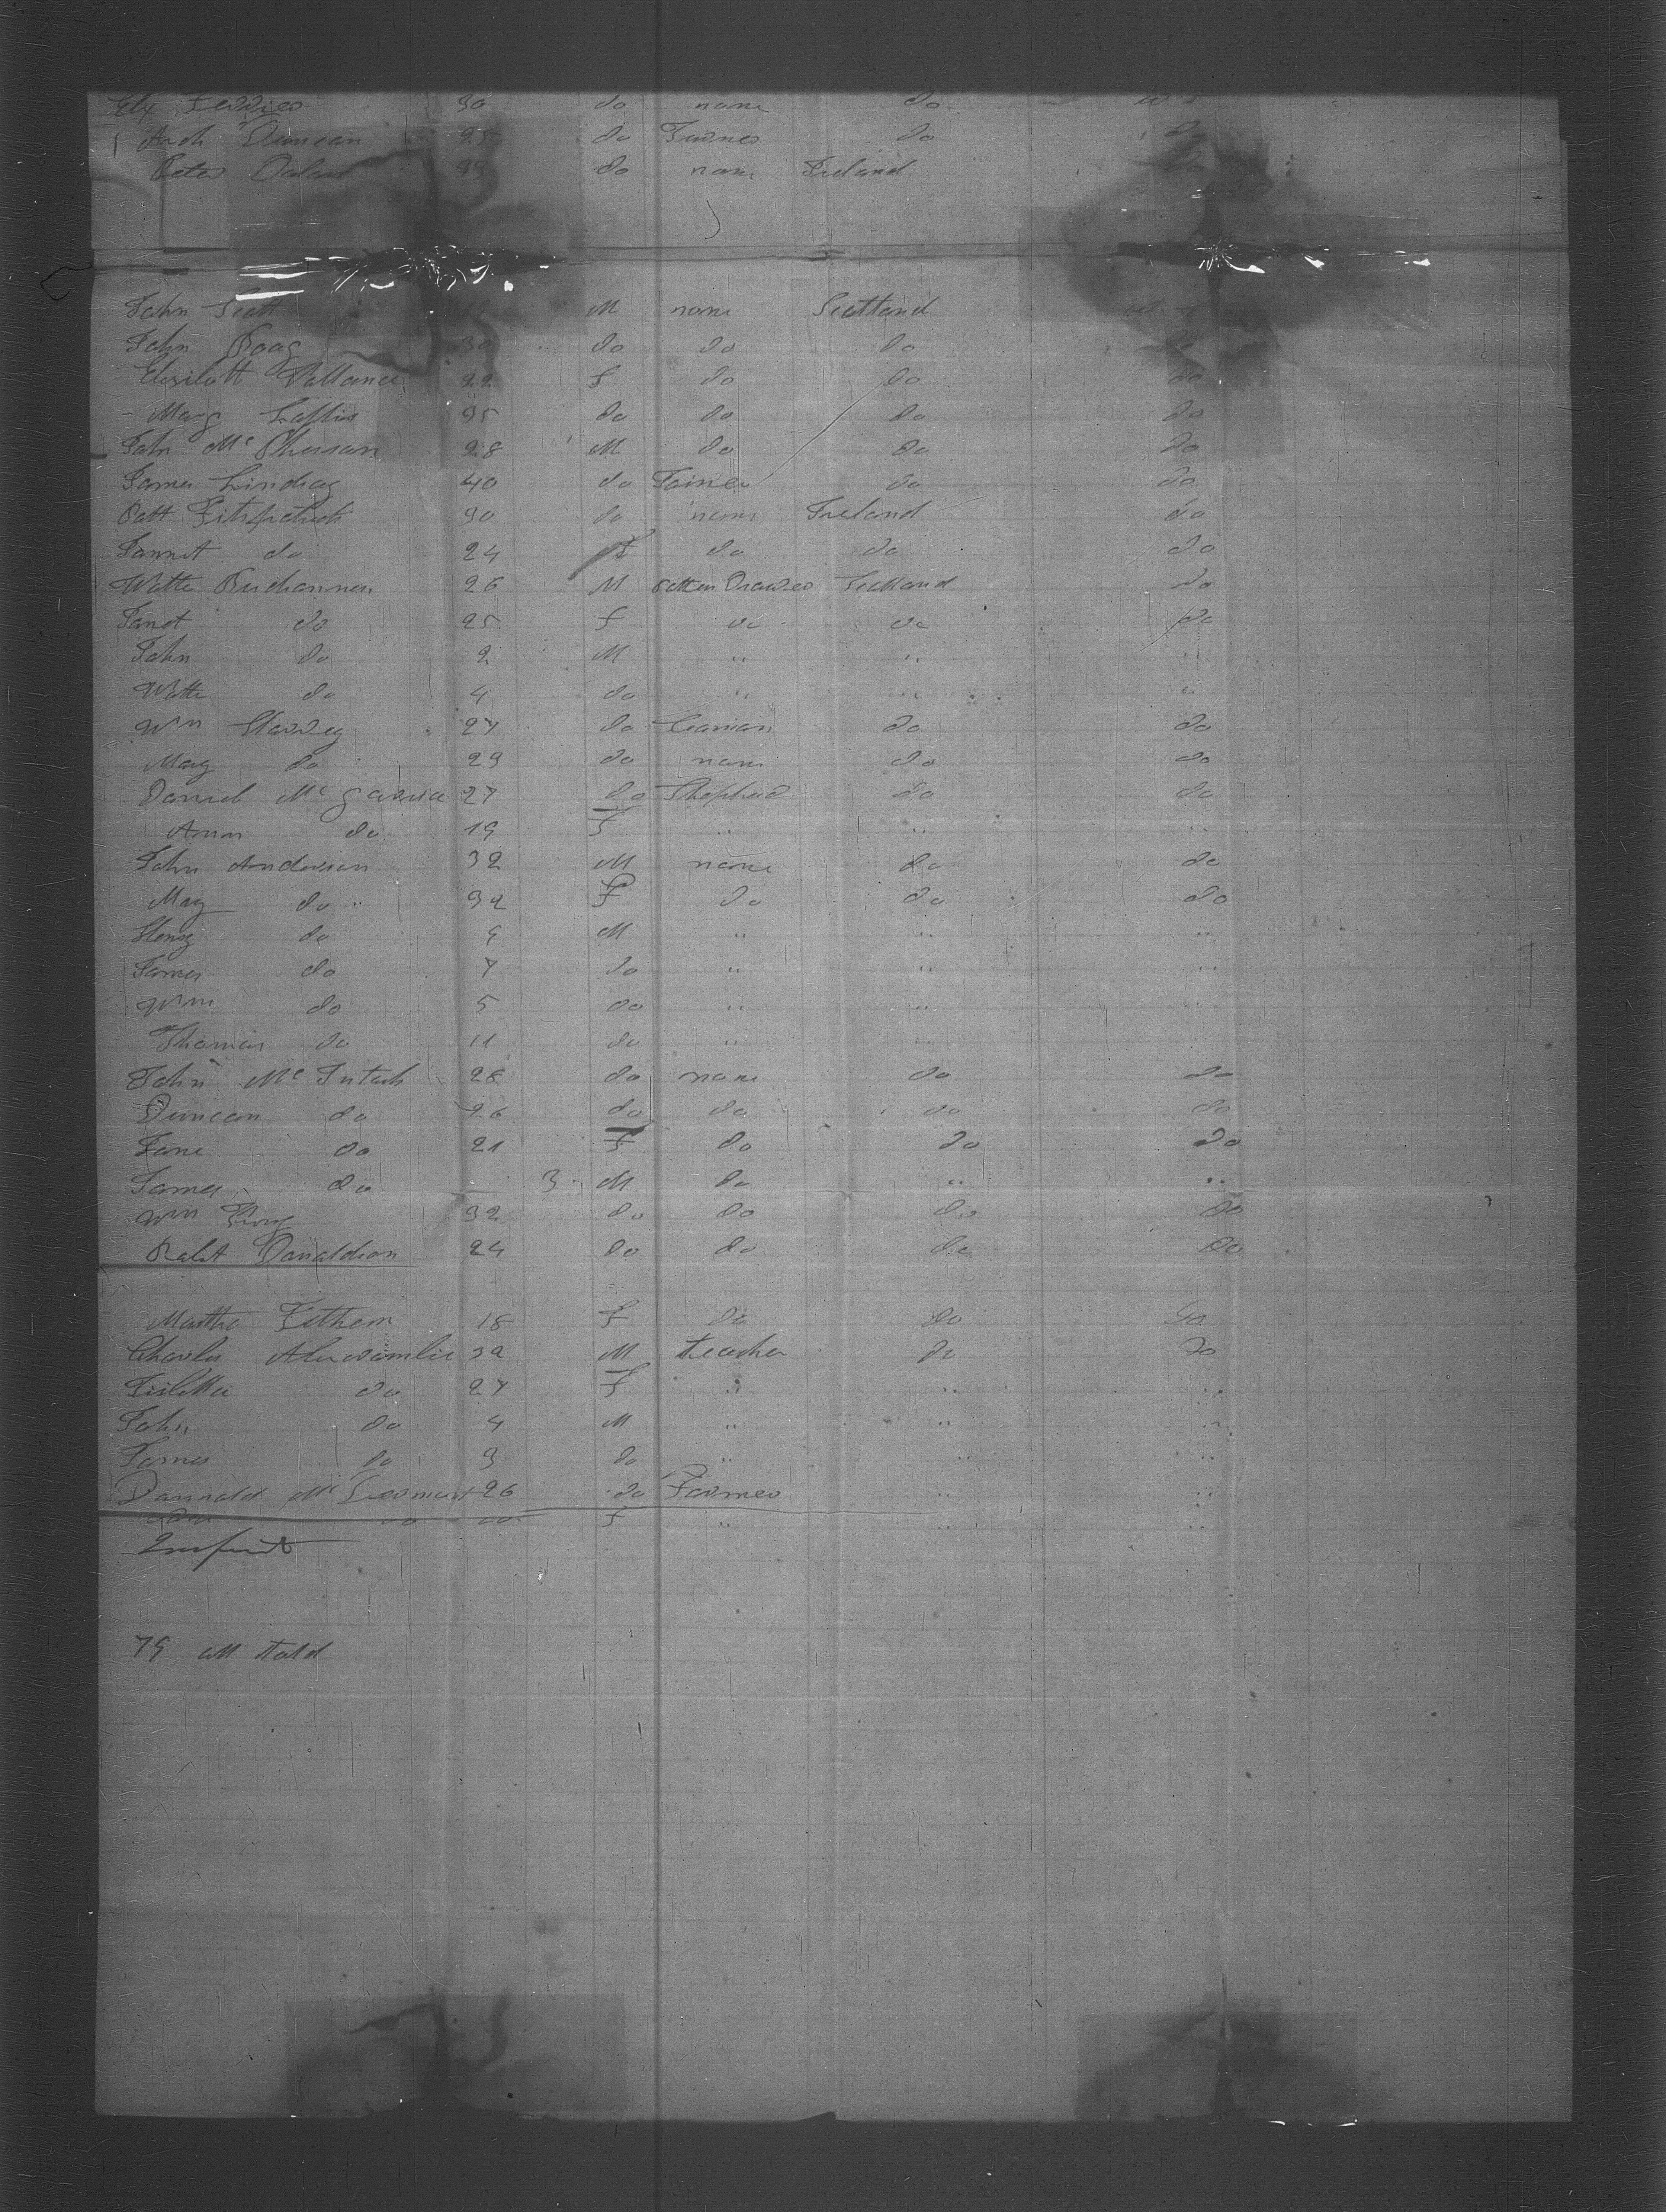 Elx Ferrier 30 do none do
Arch Duncan 25 do Turner do do
Peter Dolan do none Ireland
John Scott M none Scotland
John Boag 30 do do do do
Elisibett Vallance 22 f do do do
Marg Loftus 35 do do do do
John Mc Pherson 28 M do do do
James Lindsay 40 do do do
Patt Fitspatrick 30 do none Ireland do
Jannet do 24 F do do do
Watte Buchannen 26 M Patten Drawer Scotland do
Janet do 25 f do do do
John do 2 M " " "
Watte do 4 do " " "
Wm Harvey 27 do do do
Mary do 29 do none do do
Daniel Mc 27 do Shepherd do do
Ann do 19 F " " "
John Anderson 32 M none do do
Mary do " 32 F do do do
Henry do 9 M " " "
James do 7 do " " "
Wm do 5 do " " "
Thomas do 11 do " "
John Mc Intosh 28 do none do do
Duncan do 26 do do do do
Jane do 21 F do do do
James do 3 M do " "
Wm 32 do do do do
Robt Donaldson 24 do do do do
Martha 18 F do do do
Charles Abercrombie 32 M teacher do do
do 27 F " " "
John do 4 M " " "
James do 3 do " " "
Donnald Mc 26 do Farmer " "
do do F " " "
79 all told